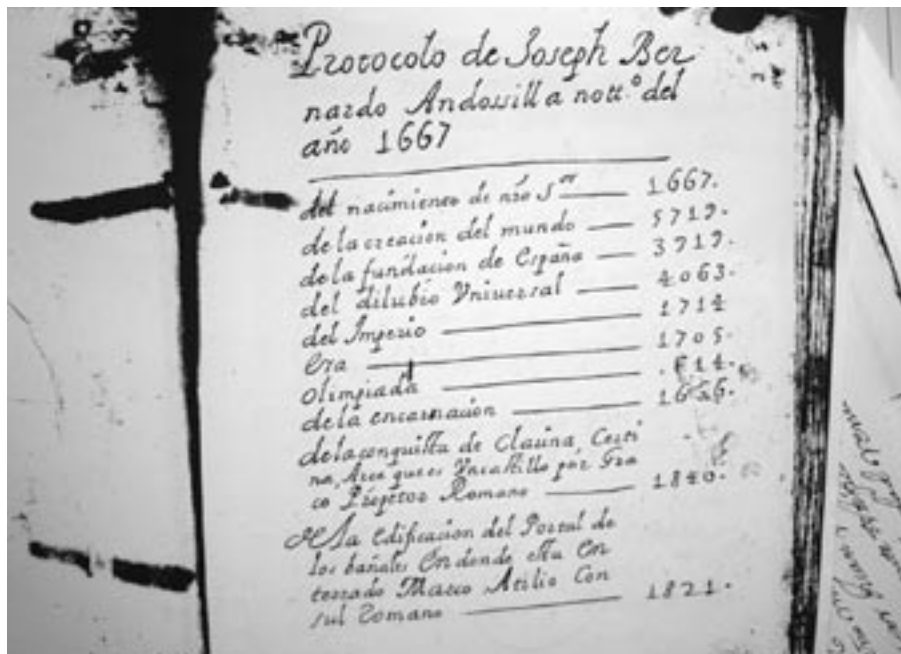 Protocolo de Joseph Ber
nardo Andossilla nott.º del
año 1667
del nacimiento de nro S.or 1667.
de la creacion del mundo 5719.
de la fundacion de España 3919.
del dilubio Vniuersal 4063.
del Imperio 1714
Era 1705.
olimpiada .614.
de la encarnacion 1666.
de la conquista de Clarina, Certi
na, que es Vncastillo por Gra
co Prepetor Romano 1840.
De la edificacion del Portal de
los bañales en donde esta en
terrado Marco Atilio Con
sul Romano 1821.